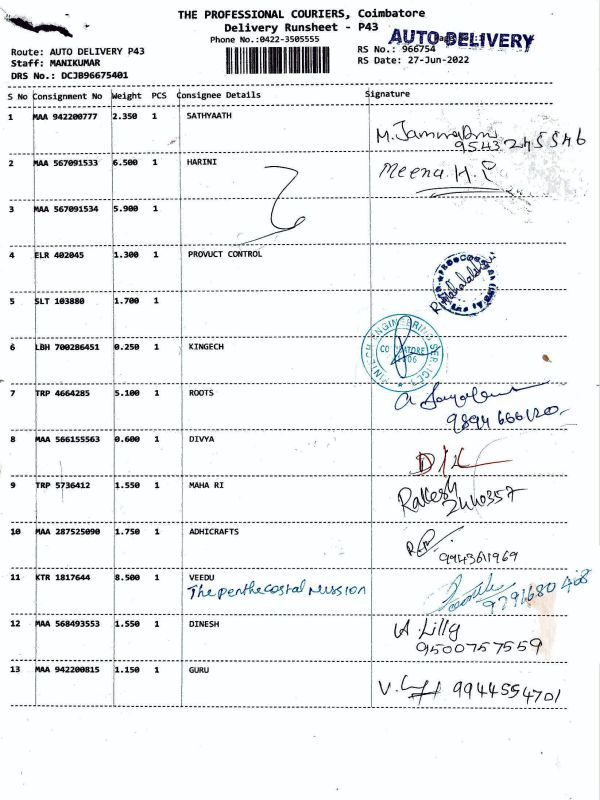 THE PROFESSIONAL COURIERS, Coimbatore
Delivery Runsheet - P43
AUTO DELIVERY
Phone No.:0422-3505555
Route: AUTO DELIVERY P43
RS No.: 966754
Staff: MANIKUMAR
RS Date: 27-Jun-2022
DRS No.: DCJB96675401
S No Consignment No Weight PCS Consignee Details Signature
1 MAA 942200777 2.350 1 SATHYAATH
9543245546
2 MAA 567091533 6.500 1 HARINI Meena.H.
3 MAA 567091534 5.900 1
4 ELR 402045 1.300 1 PROVUCT CONTROL
5 SLT 103880 1.700 1
6 LBH 700286451 0.250 1 KINGECH
7 TRP 4664285 5.100 1 ROOTS
9894666120
8 MAA 566155563 0.600 1 DIVYA
9 TRP 5736412 1.550 1 MAHA RI Rakesh
2440357
10 MAA 287525090 1.750 1 ADHICRAFTS
9943611969
11 KTR 1817644 8.500 1 VEEDU
The penthecostal mission 9791680408
12 MAA 568493553 1.550 1 DINESH A. Lilly
9500757559
13 MAA 942200815 1.150 1 GURU
9944554701